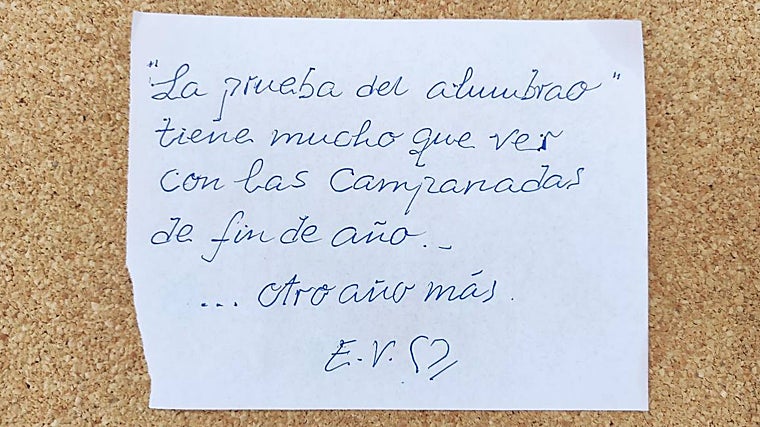 "La prueba del alumbrao"
tiene mucho que ver
con las Campanadas
de fin de año._
... otro año más.
E.V.